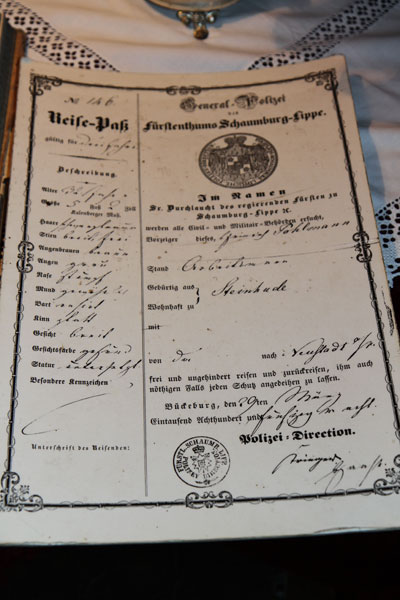 No 146.
Reise-Paß
gültig für
Beschreibung.
Alter
Größe 5 Fuß 6 Zoll
Kalenberger Maß.
Haare
Stirn breit, frei
Augenbrauen braun
Augen grau
Nase stumpf
Mund gewöhnlich
Bart
Kinn glatt
Gesicht breit
Gesichtsfarbe gesund
Statur untersetzt
Besondere Kennzeichen
Unterschrift des Reisenden:
General-Polizei
des
Fürstenthums Schaumburg-Lippe.
Im Namen
Sr. Durchlaucht des regierenden Fürsten zu
Schaumburg-Lippe ꝛc.
werden alle Civil- und Militair-Behörden ersucht,
Vorzeiger dieses, Heinrich Pöhlmann
Stand Arbeiter von
Gebürtig aus Steinhude
Wohnhaft zu
mit
von da nach Neustadt
frei und ungehindert reisen und zurückreisen, ihm auch
nöthigen Falls jeden Schutz angedeihen zu lassen.
Bückeburg, den 29ten März
Eintausend Achthundert und fünfzig u. acht.
Polizei-Direction.
FÜRSTL. SCHAUMB. LIPP.